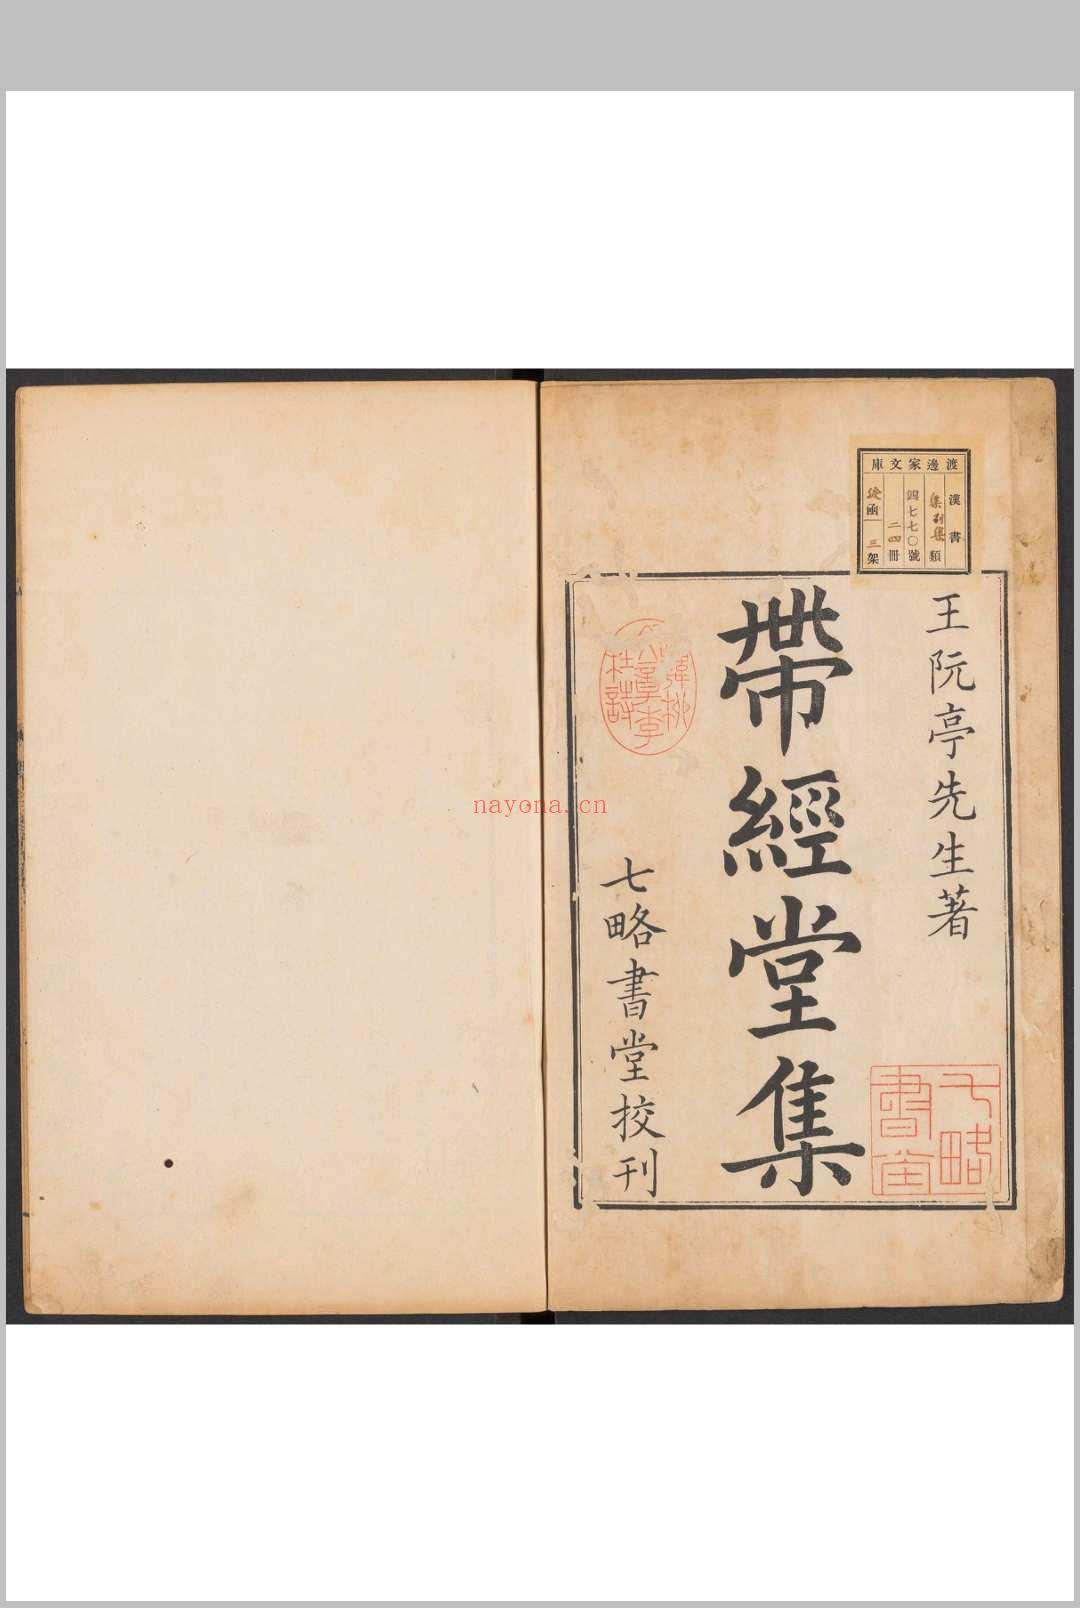 渡邊家文庫
漢書
集別集類
四七七〇號
二四冊
函三架
王阮亭先生著
帶經堂集
七略書堂校刊
七略書堂
杜詩
nayona.cn